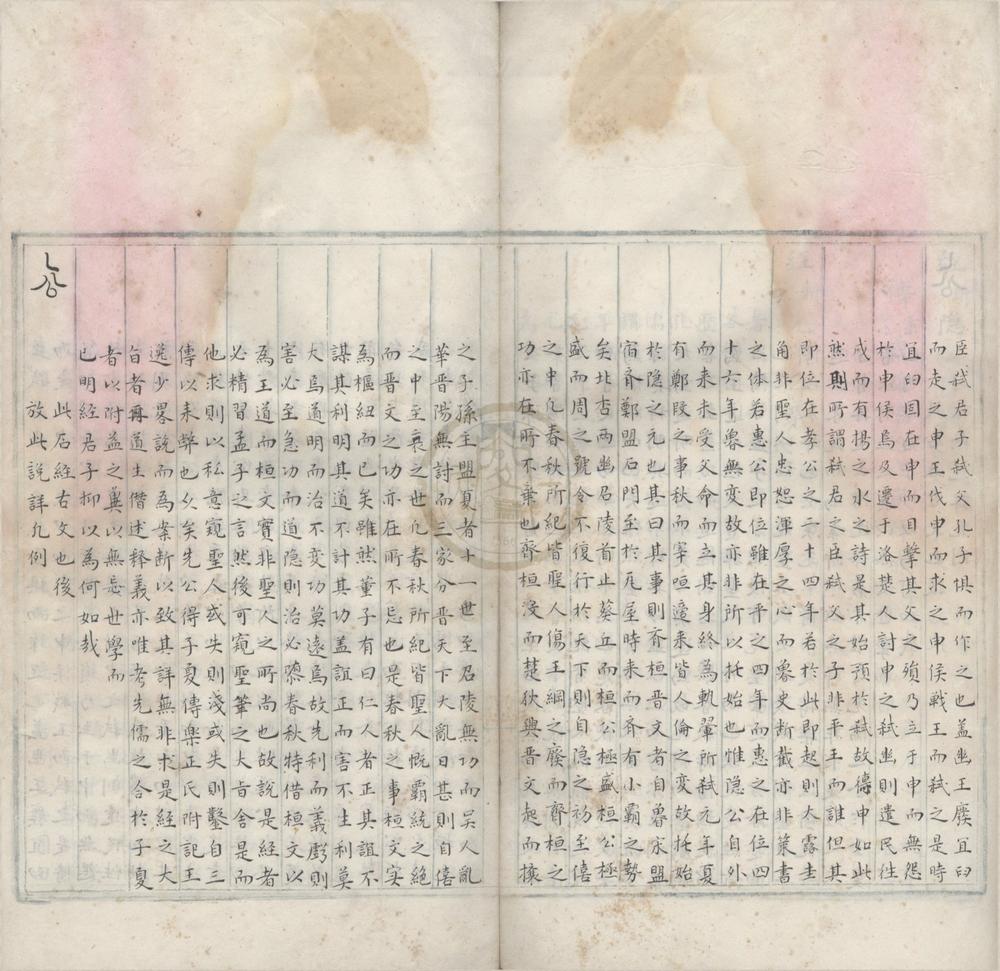 臣弑君子弑父孔子惧而作之也盖幽王廢宜臼
而走之申王伐申而求之申侯戰王而弑之是時
宜臼固在申而目擊其父之殞乃立于申而無怨
於申侯焉及遷于洛楚人討申之弑幽則遣民徃
戍而有揚之水之詩是其始預於弑故德申如此
然則所謂弑君之臣弑父之子非平王而誰但其
即位在孝公之二十四年若於此即起則大露圭
角非聖人忠恕渾厚之心而魯史断截亦非策書
之体若惠公即位雖在平之四年而惠之在位四
十六年魯無变故亦非所以托始也惟隐公自外
而来未受父命而立其身終為軌翚所弑元年夏
有鄭段之事秋而宰咺遣来皆人倫之变故托始
於隐之元也其曰其事則斉桓晋文者自魯宋盟
宿斉鄭盟石門至於瓦屋時来而斉有小霸之勢
矣北杏两幽召陵首止葵丘而桓公極盛桓公極
盛而周之號令不復行於天下則自隐之初至僖
之中凡春秋所紀皆聖人傷王綱之廢而齊桓之
功亦在所不棄也齊桓没而楚狄興晋文起而攘
之子孫主盟夏者十一世至召陵無功而吴人亂
華晋陽無討而三家分晋天下大亂日甚則自僖
之中至哀之世凡春秋所紀皆聖人慨霸統之絶
而晋文之功亦在所不忘也是春秋之事桓文实
為樞紐而已矣雖然董子有曰仁人者正其誼不
謀其利明其道不計其功盖誼正而害不生利莫
大焉道明而治不变功莫遠焉故先利而義虧則
害必至急功而道隐則治必隳春秋特借桓文以
為王道而桓文實非聖人之所尚也故說是経者
必精習孟子之言然後可窺聖筆之大旨舍是而
他求則以私意窺聖人或失則淺或失則鑿自三
傳以来弊也久矣先公得子夏傳楽正氏附記王
選少畧說而為案断以致其詳無非求是経之大
旨者再道生僭述释義亦唯考先儒之合於子夏
者以附益之冀以無忘世學而
已明経君子抑以為何如哉
此石経古文也後
放此説詳凡例